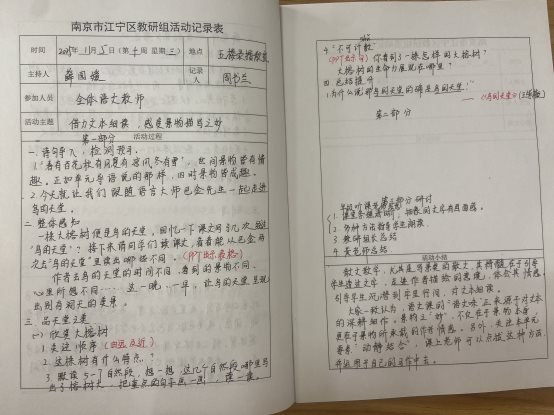 南京市江宁区教研组活动记录表
时间 2025年11月5日(第十周 星期三) 地点 五楼录播教室
主持人 薛园媛 记录人 周书兰
参加人员 全体语文教师
活动主题 借力文本细读,感受景物描写之妙
活动过程
第一部分
一、诗句导入,检测预习。
1."春有百花秋有月夏有凉风冬有雪",四时景物皆有情
趣。正如单元导语说的那样,四时景物皆成趣。
2.今天就让我们跟随语言大师巴金先生一起走进
鸟的天堂。
二、整体感知
一株大榕树便是鸟的天堂,回忆一下课文
"鸟的天堂"?接下来请同学们读课文,看看能从巴金两
次去"鸟的天堂"里读出哪些不同。(PPT出示表格)
作者去鸟的天堂的时间不同,看到的景物不同,
心里所感不同……这一晚,一早,让鸟的天堂呈现
出别有洞天的美景。
三、品天堂之美
(一)欣赏大榕树
1.关注顺序(由远及近)
2.这株树有什么特点?
3.默读5-7自然段,想一想这几个自然段哪里写
出了榕树大,把重点的句子画一画,读一读。
4."不可计数"
(PPT出示句)你看到了一株怎样的大榕树?
大榕树的生命力展现在哪里?
四、总结提升
1.为什么说"那鸟的天堂的确是鸟的天堂"?
——《鸟的天堂》
第二部分
第三部分 研讨
2.多种方法指导学生朗读
3.教研组长总结
4.黄老师总结
活动小结
散文教学,尤其是写景的散文,其精髓在于引导
学生透过文字,去坐作者描绘的意境,体会其情感,
引导学生沉潜到字里行间,对文本细读。
大家一致认为,语文课的"语文味"正来源于对文本
的深耕细作。景物之"妙",不仅在于景物本身,
更在于景物所承载的作者情感。另外,关注本单元
要素"动静结合",课上老师可以点拨这种方法,
并运用于自己的习作中去。